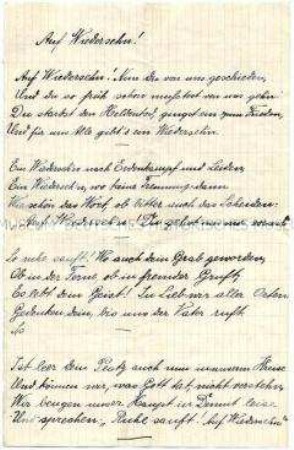 Auf Wiedersehn!
Auf Wiedersehn! Nun du von uns geschieden,
Und du so früh schon musstest von uns gehn
Du starbst den Heldentod, gingst ein zum Frieden,
Und für uns Alle gibt's ein Wiedersehn.
Ein Wiedersehn nach Erdenkampf und Leiden,
Ein Wiedersehn, wo keine Trennung dann
Wie schön das Wort, ob bitter auch das Scheiden
Auf Wiedersehn! Du gehst uns nur voran
So ruhe sanft! Wo auch dein Grab geworden,
Ob in der Ferne, ob in fremder Gruft,
Es lebt dein Geist! In Lieb wir aller Orten
Gedenken dein, bis uns der Vater ruft.
So
Ist leer dein Platz auch nun in unserm Hause
Und können wir, was Gott tat nicht verstehn,
Wir beugen unser Haupt in Demut leise
Und sprechen: "Ruhe sanft! Auf Wiedersehn"